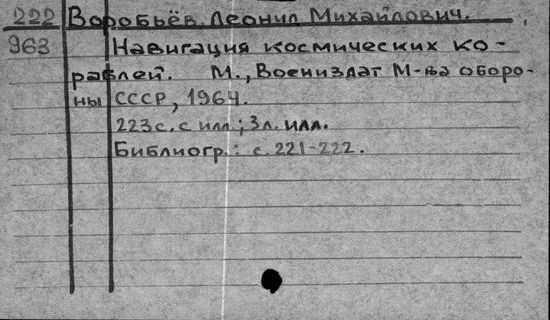 222 Воробьёв Леонид Михайлович.
963 Навигация космических ко-
раблей. М., Воениздат М-ва оборо-
ны СССР, 1964.
223 с. с илл.; 3 л. илл.
Библиогр.: с. 221-222.